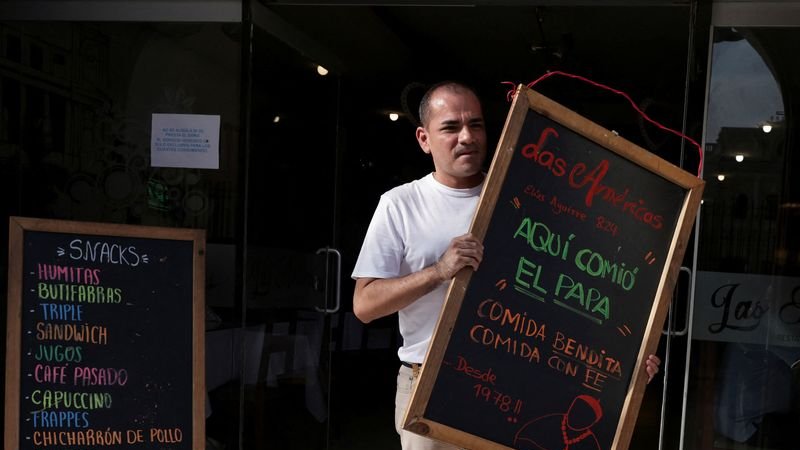 SNACKS
- HUMITAS
- BUTIFARRAS
- TRIPLE
- SANDWICH
- JUGOS
- CAFÉ PASADO
- CAPUCCINO
- FRAPPES
- CHICHARRÓN DE POLLO
Las Américas
Elías Aguirre 824
AQUÍ COMIÓ
EL PAPA
COMIDA BENDITA
COMIDA CON FE
Desde
1978!!
Las